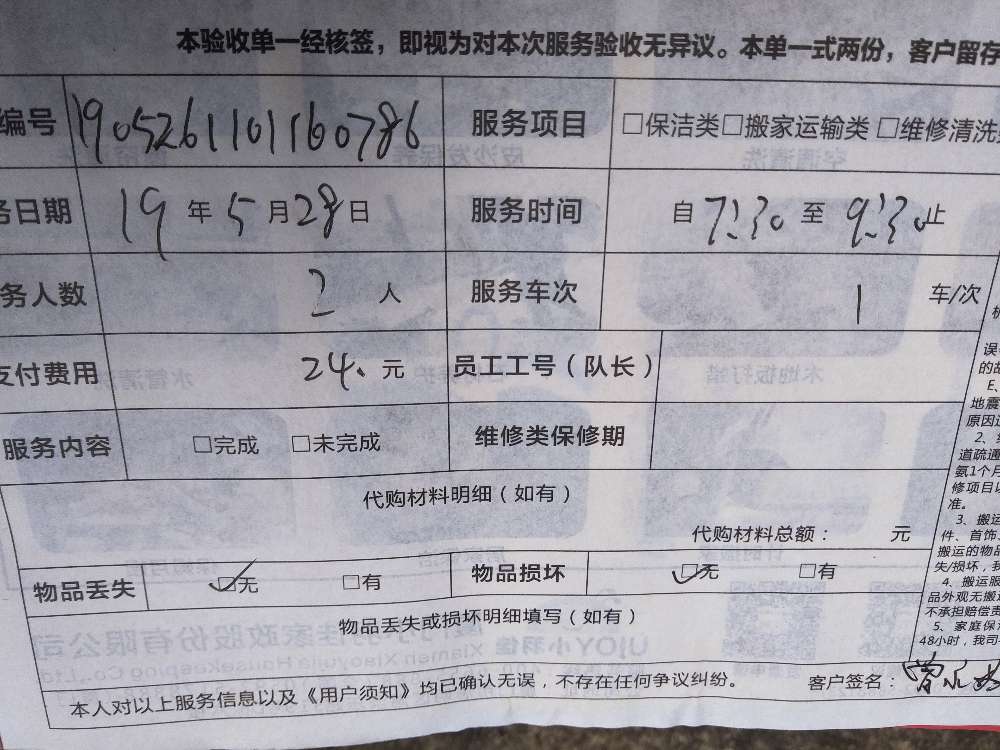 本验收单一经核签，即视为对本次服务验收无异议。本单一式两份，客户留存
编号 1905261101160786 服务项目 □保洁类□搬家运输类 □维修清洗
务日期 19年5月28日 服务时间 自7:30至9:30止
务人数 2人 服务车次 1 车/次
支付费用 24.元 员工工号（队长）
服务内容 □完成 □未完成 维修类保修期
代购材料明细（如有）
代购材料总额： 元
物品丢失 ☑无 □有 物品损坏 ☑无 □有
物品丢失或损坏明细填写（如有）
本人对以上服务信息以及《用户须知》均已确认无误，不存在任何争议纠纷。 客户签名：曾
的故
E、
地震
原因
2、
道疏通
氨1个月
修项目以
准。
3、搬运
件、首饰、
搬运的物品
失/损坏，我
4、搬运服
品外观无搬
不承担赔偿责
5、家庭保
48小时，我司
UJOY小羽佳
Xiamen Xiaoyujia Housekeeping Co.,Ltd.